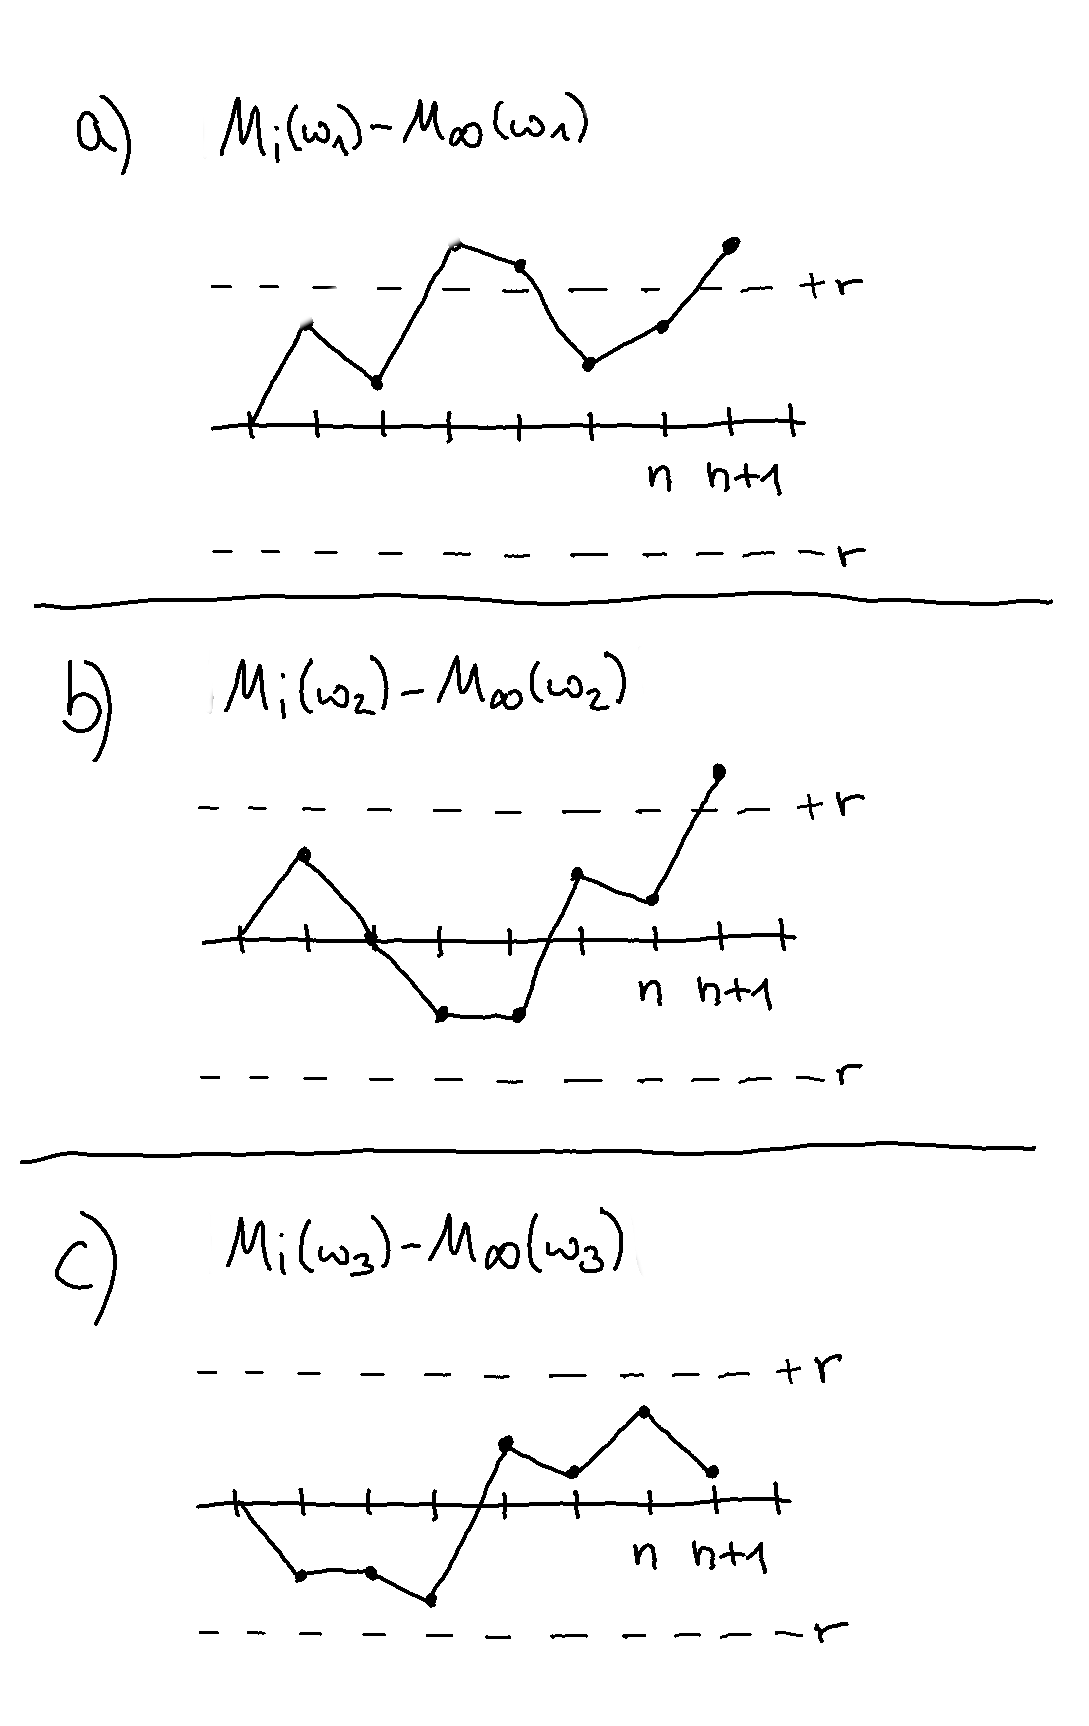 a) M_i(ω_1) - M_∞(ω_1)
+r
n n+1
-r
b) M_i(ω_2) - M_∞(ω_2)
+r
n n+1
-r
c) M_i(ω_3) - M_∞(ω_3)
+r
n n+1
-r